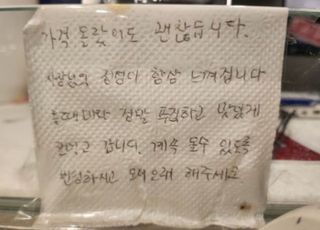 가격 올랐어도 괜찮습니다.
사장님의 정성이 항상 느껴집니다
올때마다 정말 푸짐하고 맛있게
잘먹고 갑니다. 계속 올수 있도록
번창하시고 오래오래 해주세요